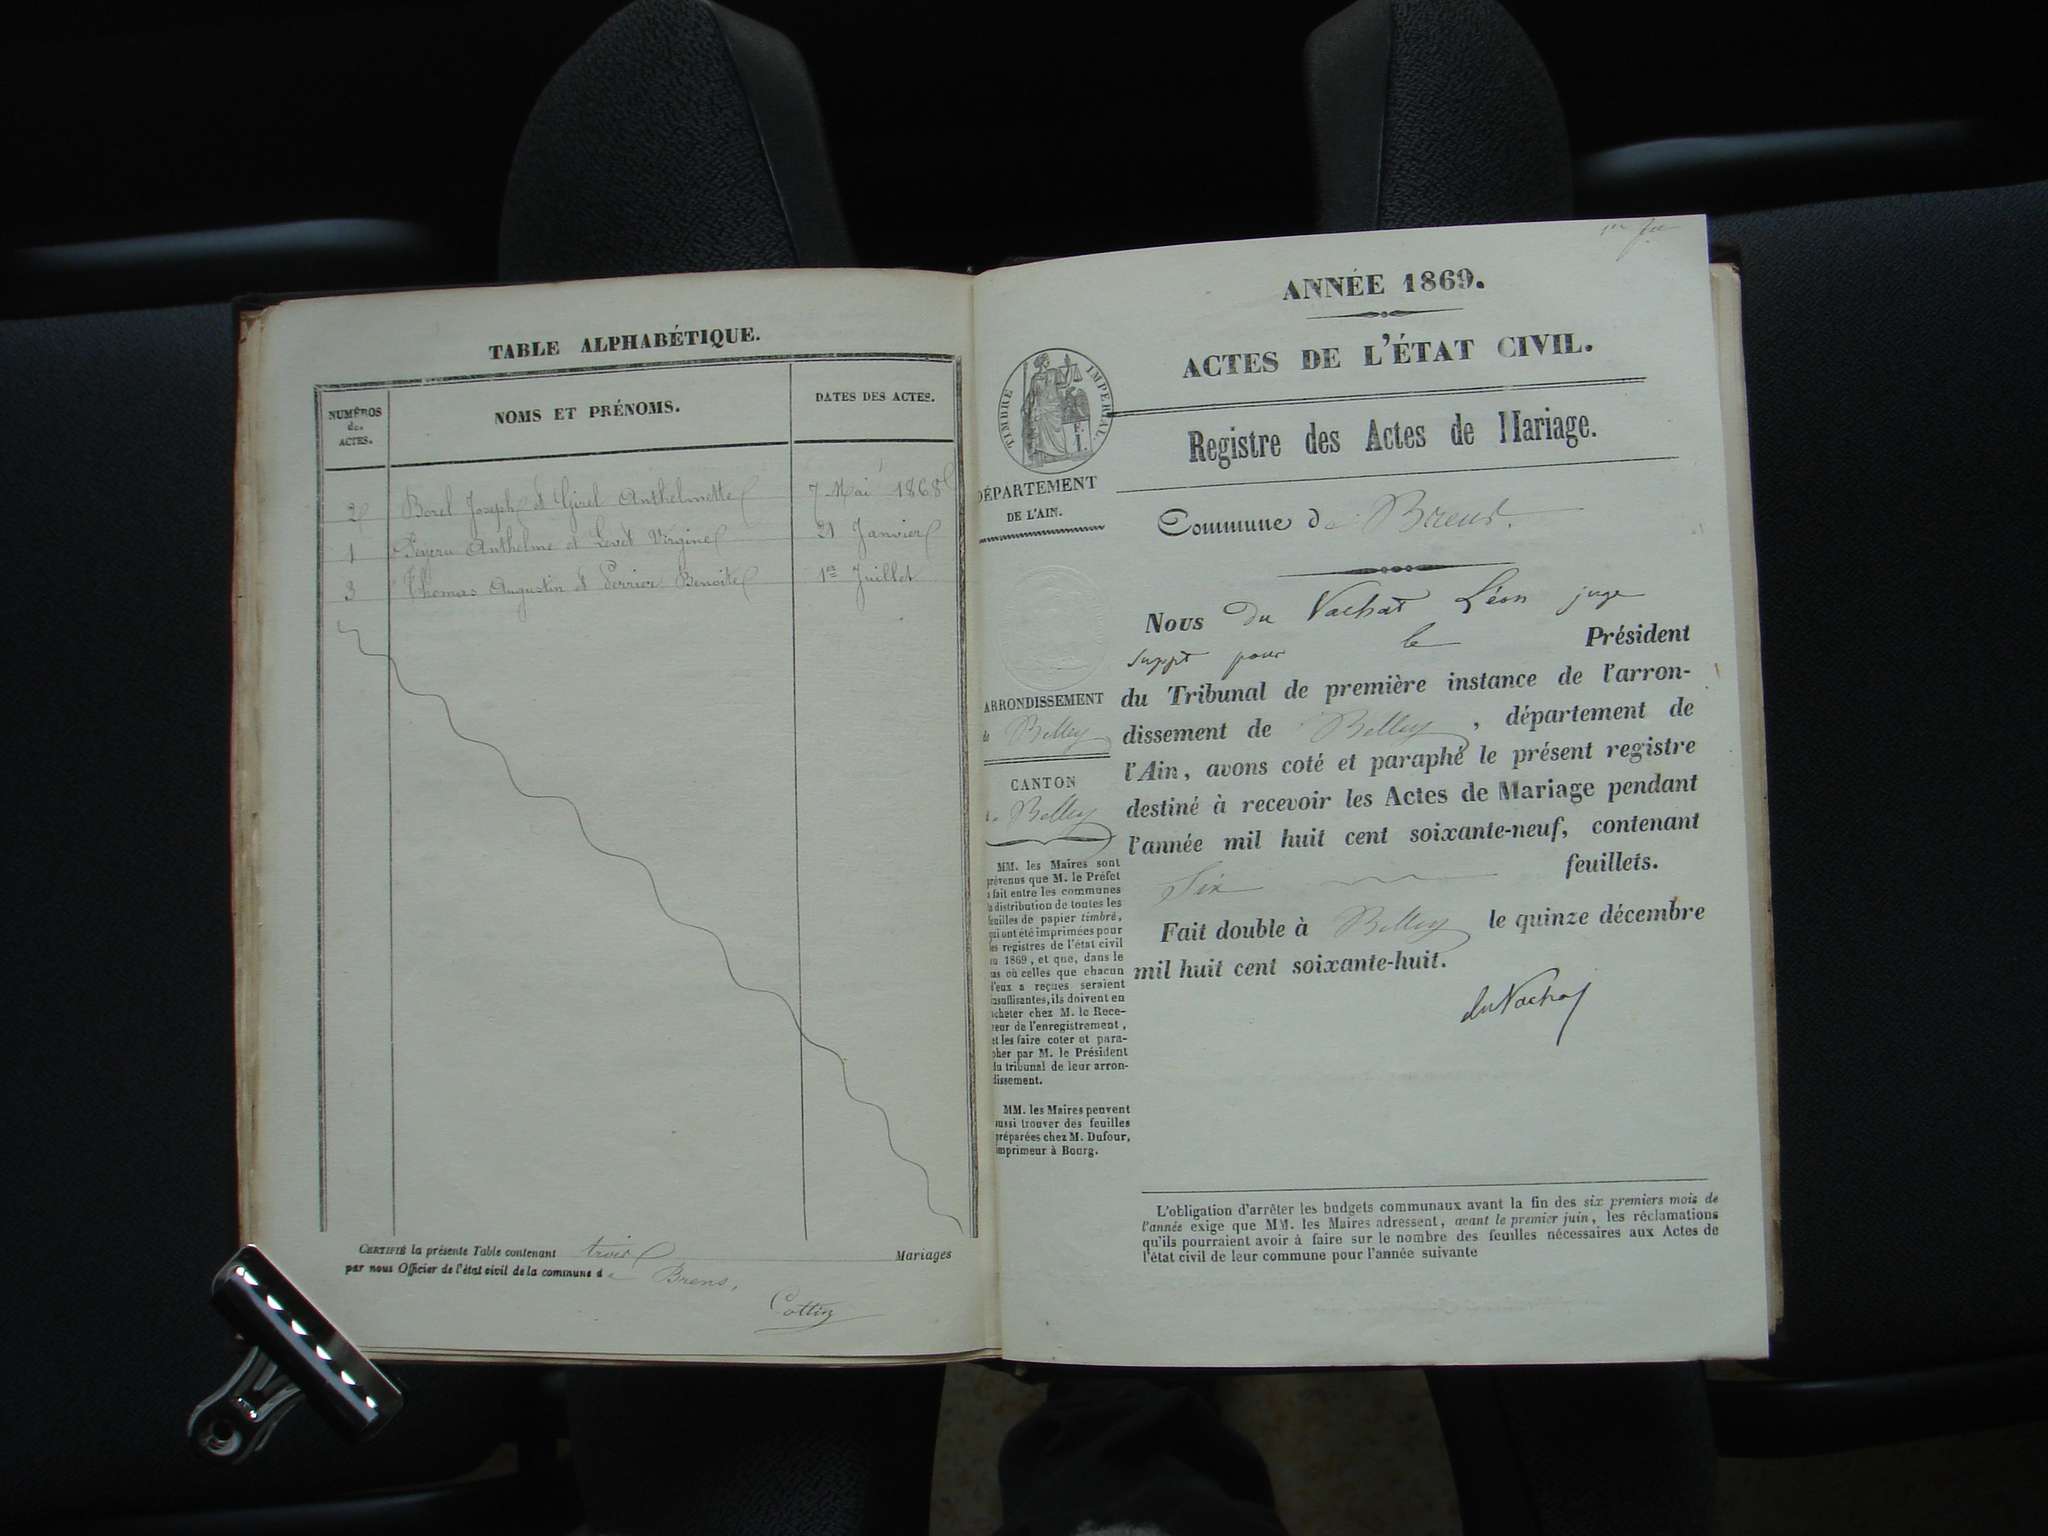 TABLE ALPHABÉTIQUE.
NUMÉROS
des
ACTES.
NOMS ET PRÉNOMS.
DATES DES ACTES.
2 Borel Joseph et Girel Anthelmette 7 Mai 1868
1 Anthelme et Levet Virginie 21 Janvier
3 Thomas Augustin et Perrier Benoite 1er Juillet
CERTIFIÉ la présente Table contenant trois Mariages
par nous Officier de l'état civil de la commune de Brens.
Cottin
ANNÉE 1869.
ACTES DE L'ÉTAT CIVIL.
TIMBRE IMPÉRIAL.
Registre des Actes de Mariage.
DÉPARTEMENT
DE L'AIN.
Commune de Brens.
ARRONDISSEMENT
de Belley
CANTON
de Belley
MM. les Maires sont
prévenus que M. le Préfet
a fait entre les communes
la distribution de toutes les
feuilles de papier timbré,
qui ont été imprimées pour
les registres de l'état civil
en 1869, et que, dans le
cas où celles que chacun
d'eux a reçues seraient
insuffisantes, ils doivent en
acheter chez M. le Rece-
veur de l'enregistrement,
et les faire coter et para-
pher par M. le Président
du tribunal de leur arron-
dissement.
MM. les Maires peuvent
aussi trouver des feuilles
préparées chez M. Dufour,
imprimeur à Bourg.
Nous Du Vachat Léon juge
suppt pour le Président
du Tribunal de première instance de l'arron-
dissement de Belley, département de
l'Ain, avons coté et paraphé le présent registre
destiné à recevoir les Actes de Mariage pendant
l'année mil huit cent soixante-neuf, contenant
Six feuillets.
Fait double à Belley le quinze décembre
mil huit cent soixante-huit.
du Vachat
L'obligation d'arrêter les budgets communaux avant la fin des six premiers mois de
l'année exige que MM. les Maires adressent, avant le premier juin, les réclamations
qu'ils pourraient avoir à faire sur le nombre des feuilles nécessaires aux Actes de
l'état civil de leur commune pour l'année suivante